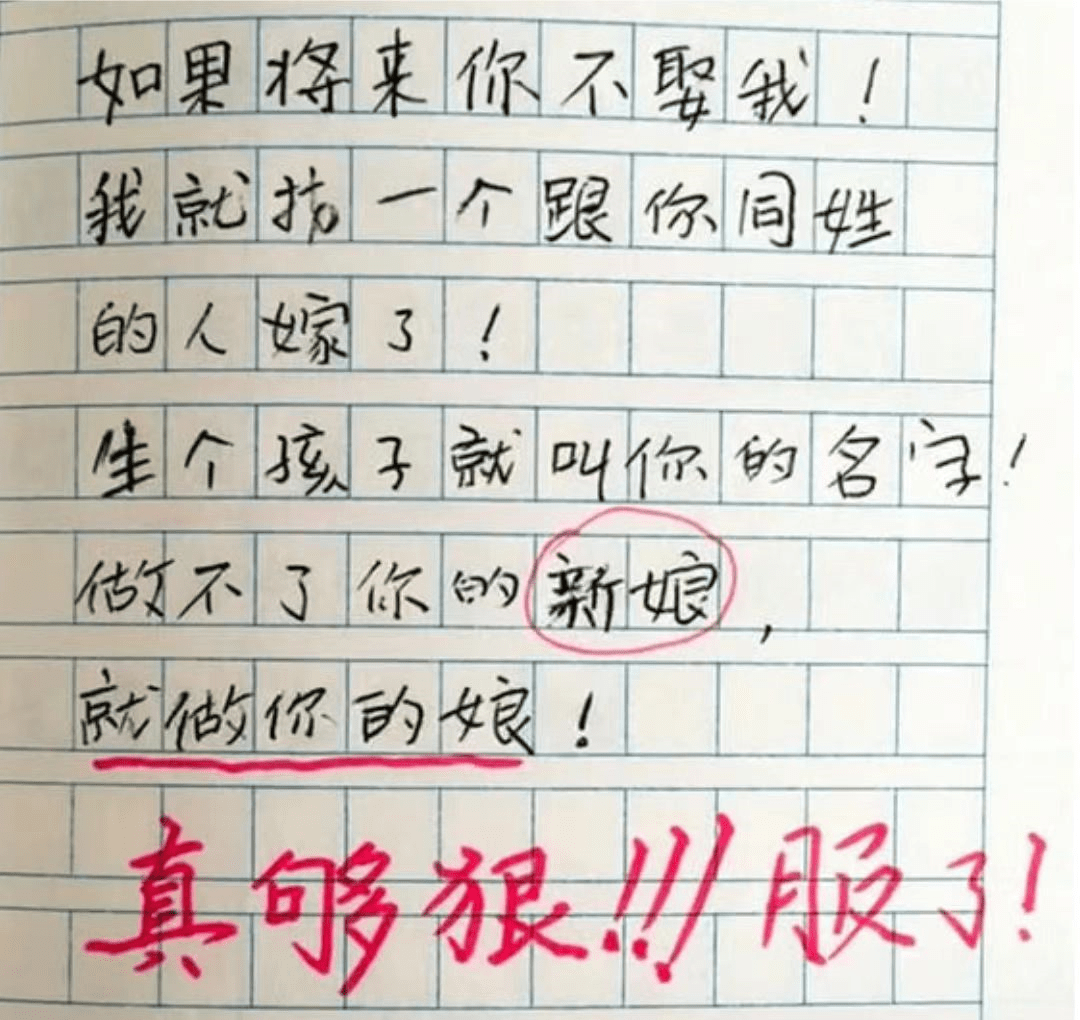 如果将来你不娶我！
我就找一个跟你同姓
的人嫁了！
生个孩子就叫你的名字！
做不了你的新娘，
就做你的娘！
真够狠！！！服了！